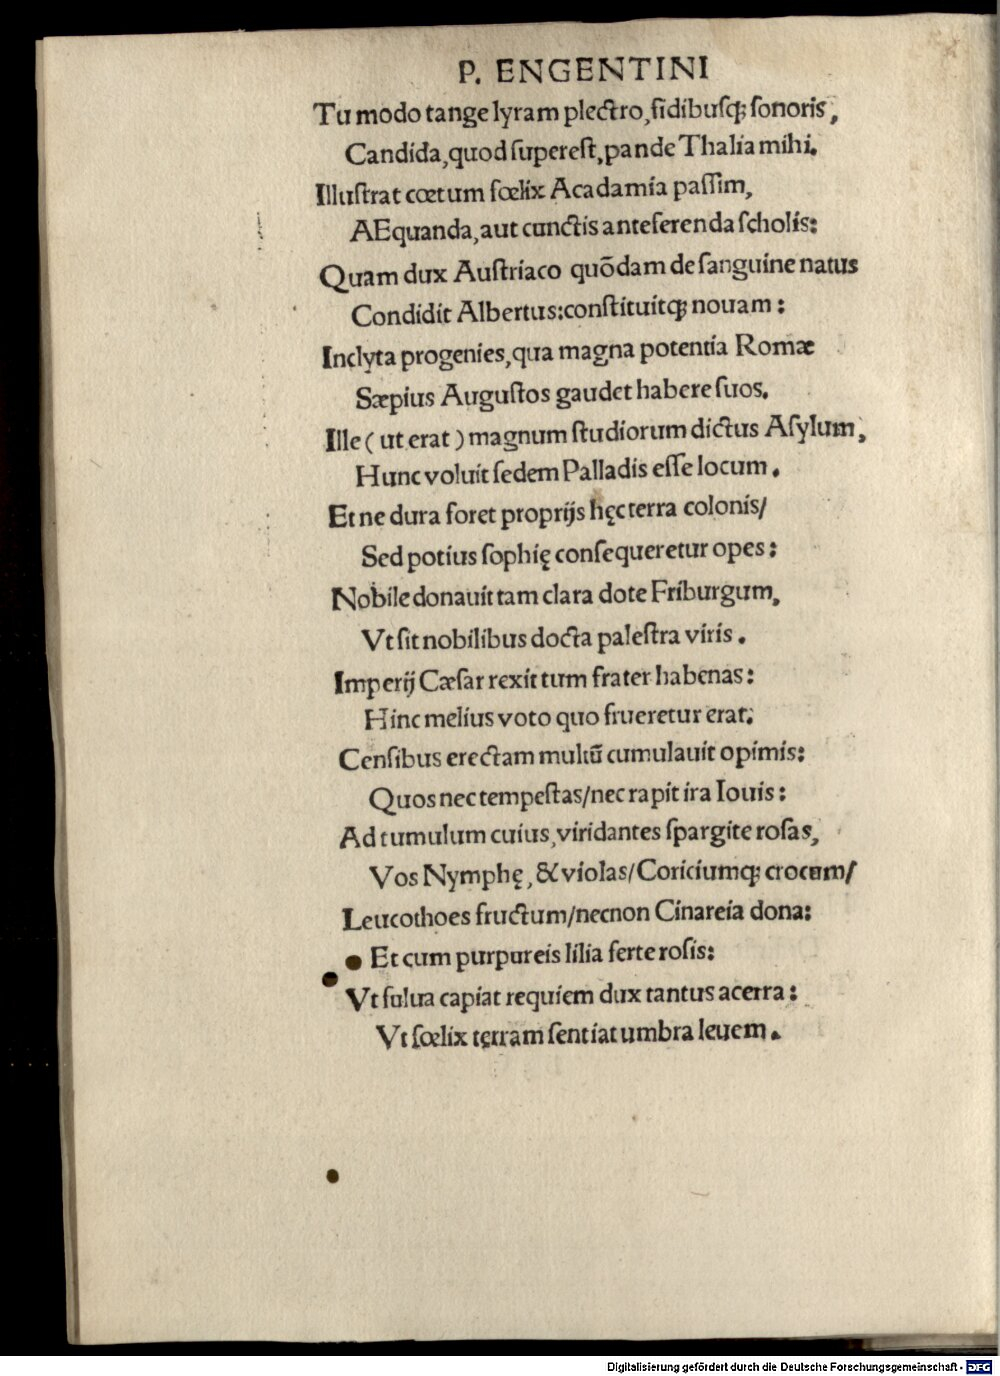 P. ENGENTINI
Tu modo tange lyram plectro, fidibusqꝫ sonoris,
Candida, quod superest, pande Thalia mihi.
Illustrat cœtum fœlix Acadamia passim,
AEquanda, aut cunctis anteferenda scholis:
Quam dux Austriaco quōdam de sanguine natus
Condidit Albertus: constituitqꝫ nouam:
Inclyta progenies, qua magna potentia Romæ
Sæpius Augustos gaudet habere suos.
Ille ( ut erat ) magnum studiorum dictus Asylum,
Hunc voluit sedem Palladis esse locum.
Et ne dura foret proprijs hęc terra colonis/
Sed potius sophię consequeretur opes:
Nobile donauit tam clara dote Friburgum,
Vt sit nobilibus docta palestra viris.
Imperij Cæsar rexit tum frater habenas:
Hinc melius voto quo frueretur erat.
Censibus erectam multū cumulauit opimis:
Quos nec tempestas/nec rapit ira Iouis:
Ad tumulum cuius, viridantes spargite rosas,
Vos Nymphę, & violas/Coriciumqꝫ crocum/
Leucothoes fructum/necnon Cinareia dona:
Et cum purpureis lilia ferte rosis:
Vt fulua capiat requiem dux tantus acerra:
Vt fœlix tęrram sentiat umbra leuem.
Digitalisierung gefördert durch die Deutsche Forschungsgemeinschaft - DFG